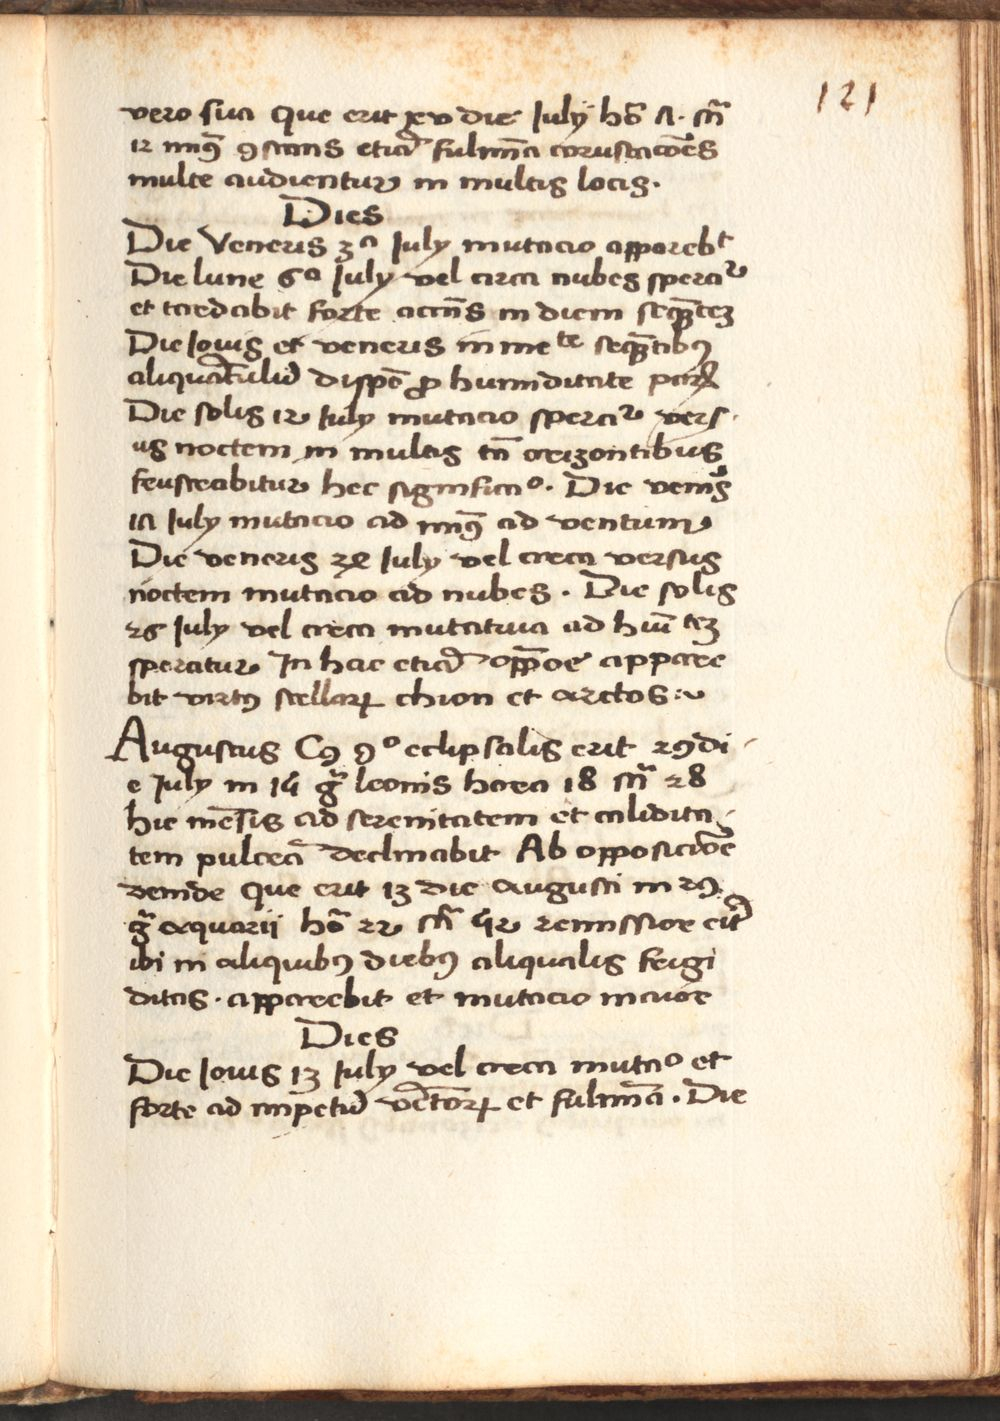 121
vero sua que erit xv die July ho 7. m̄
12 ꝯstans etiā fulmina coruscacōes
multe audientur in multis locis.
Dies
Die Veneris 3ª July mutacio apparebt
Die lune 6ª July vel circa nubes speratr
et tardabit forte in diem sequētē
Die Iovis et veneris sequētibꝰ
aliquātulū dispō ꝓ humiditate
Die solis 12 July mutacio speratr vers
us noctem in multis tn̄ orizontibus
hec significaº. Die
17 July mutacio ad ad ventum
Die veneris 24 July vel circa versus
noctem mutacio ad nubes. Die solis
26 July vel circa ad
speratur In hac etiā oppōe appare
bit virtꝰ stellarꝝ chion et arctos:
Augustus ꝯº eclipsalis erit 29 di
e July in 14 gͣ leonis hora 18 m̄ 28
hic mēsis ad serenitatem et calidita
tem pulcrā declinabit Ab opposiciōe
deinde que erit 13 die augusti in 29
gͣ aquarii hō 22 m̄ 42 remissior erit
ibi in aliquibꝰ diebꝰ aliqualis frigi
ditas. apparebit et mutacio maior
Dies
Die Iovis 13 July vel circa mutaº et
forte ad impetū vētorꝝ et fulmina. Die